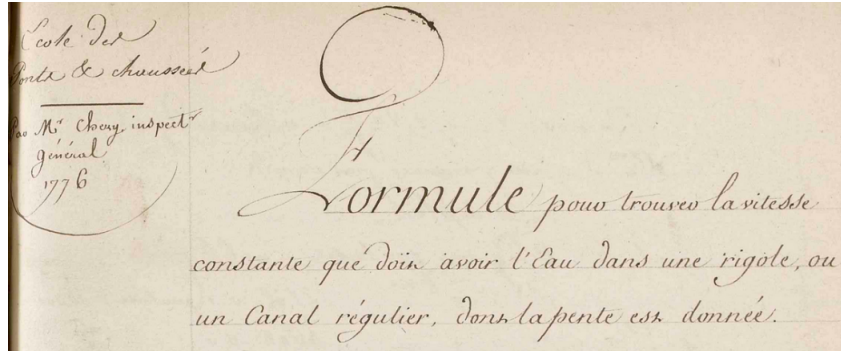 École des
Ponts & chaussées
Par Mr. Chezy, inspectr
général
1776
Formule pour trouver la vitesse
constante que doit avoir l'Eau dans une rigole, ou
un Canal régulier, dont la pente est donnée.